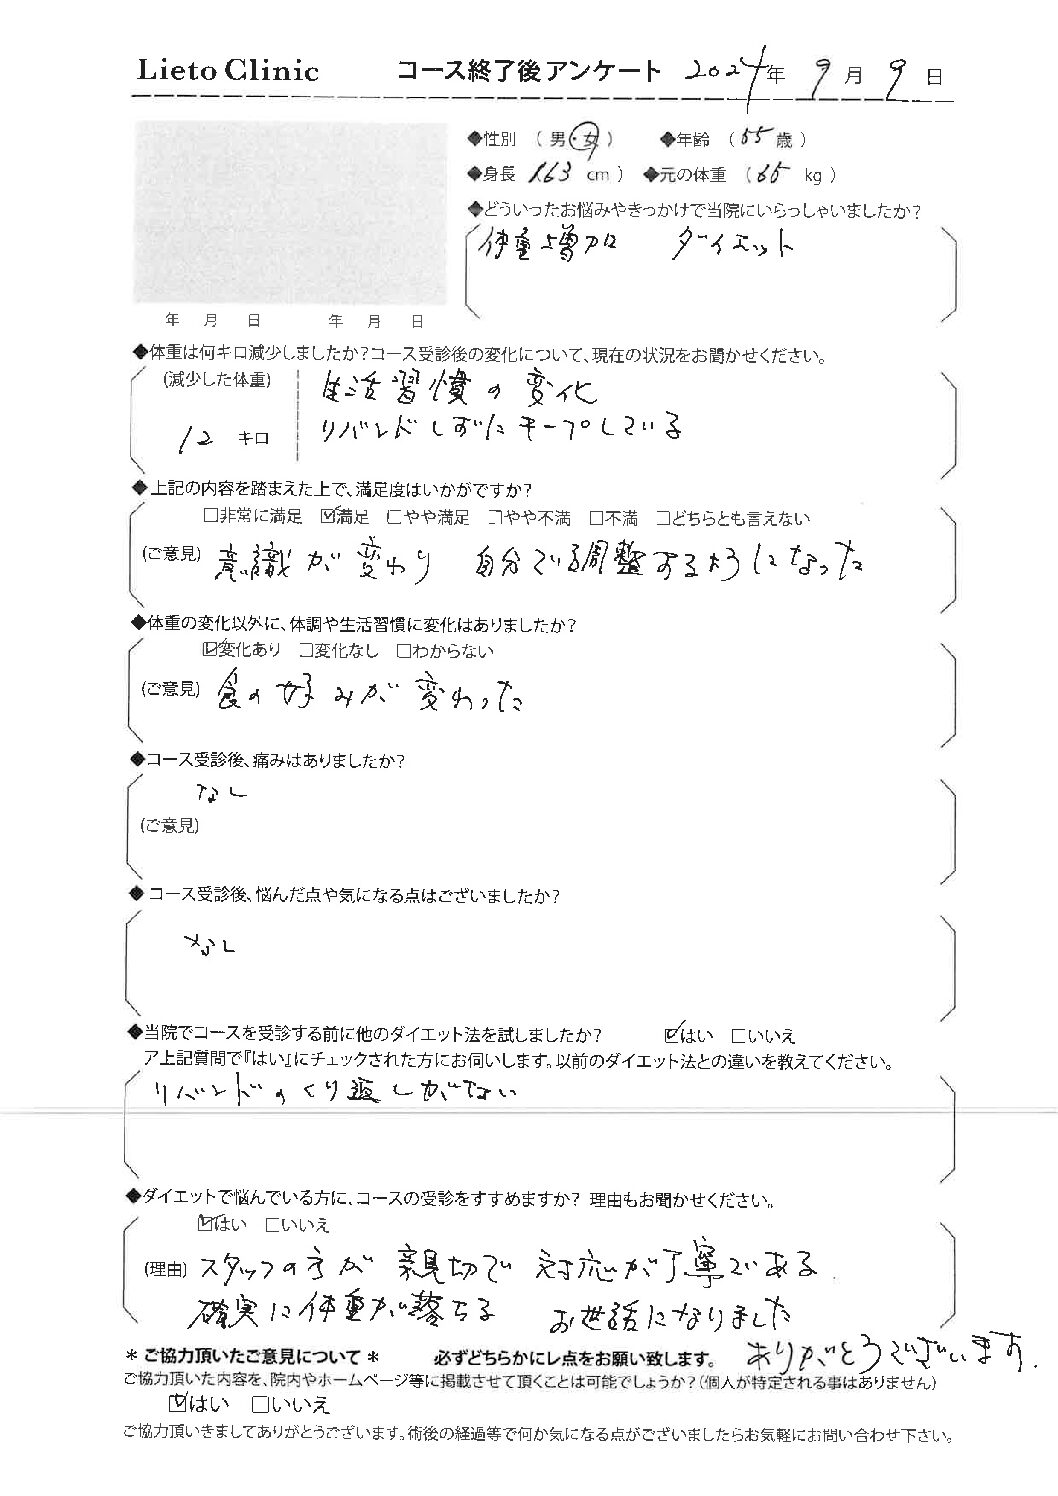 Lieto Clinic コース終了後アンケート 2024年 9月 9日
◆性別 （ 男・女 ） ◆年齢 （ 55 歳 ）
◆身長 163 cm ） ◆元の体重 （ 65 kg ）
◆どういったお悩みやきっかけで当院にいらっしゃいましたか？
体重増加 ダイエット
年 月 日 年 月 日
◆体重は何キロ減少しましたか？コース受診後の変化について、現在の状況をお聞かせください。
(減少した体重) 生活習慣の変化
12 キロ リバンドしずにキープしている
◆上記の内容を踏まえた上で、満足度はいかがですか？
□非常に満足 ☑満足 □やや満足 □やや不満 □不満 □どちらとも言えない
(ご意見) 意識が変わり 自分でいる調整するようになった
◆体重の変化以外に、体調や生活習慣に変化はありましたか？
☑変化あり □変化なし □わからない
(ご意見) 食の好みが変わった
◆コース受診後、痛みはありましたか？
なし
(ご意見)
◆ コース受診後、悩んだ点や気になる点はございましたか？
なし
◆当院でコースを受診する前に他のダイエット法を試しましたか？ ☑はい □いいえ
ア上記質問で『はい』にチェックされた方にお伺いします。以前のダイエット法との違いを教えてください。
リバンドのくり返しがない
◆ダイエットで悩んでいる方に、コースの受診をすすめますか？ 理由もお聞かせください。
☑はい □いいえ
(理由) スタッフの方が親切で 対応が丁寧である
確実に体重が落ちる お世話になりました
ありがとうございます.
＊ご協力頂いたご意見について＊ 必ずどちらかにレ点をお願い致します。
ご協力頂いた内容を、院内やホームページ等に掲載させて頂くことは可能でしょうか？(個人が特定される事はありません)
☑はい □いいえ
ご協力頂いきましてありがとうございます。術後の経過等で何か気になる点がございましたらお気軽にお問い合わせ下さい。